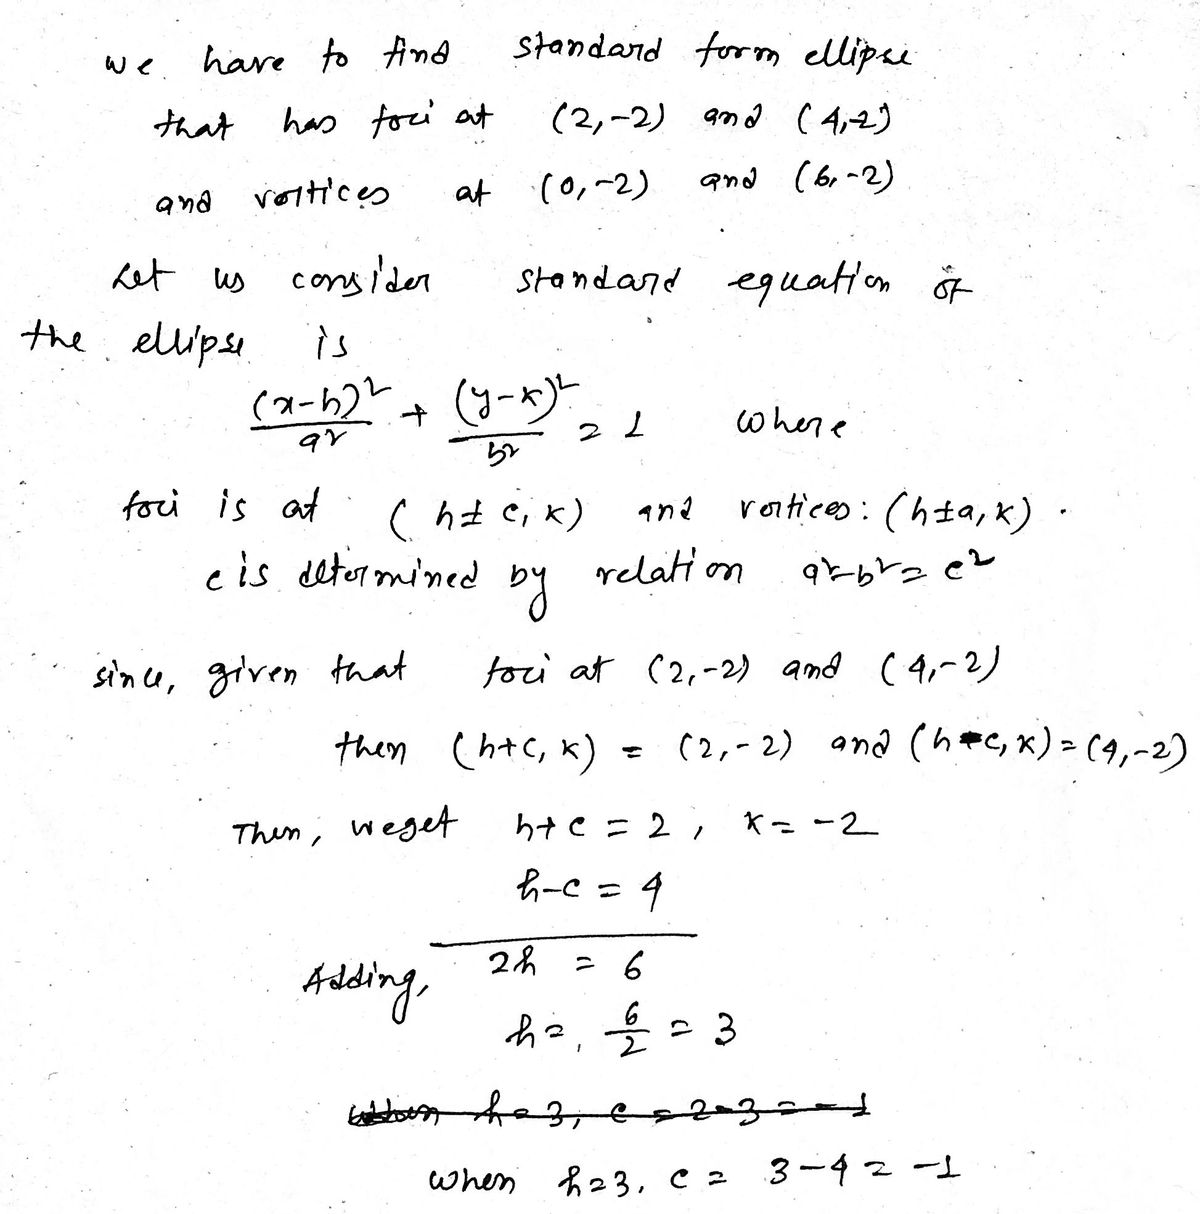 we have to find standard form ellipse
that has foci at (2,-2) and (4,-2)
and vertices at (0,-2) and (6,-2)
Let us consider standard equation of
the ellipse is
(x-h)²/a² + (y-k)²/b² = 1 where
foci is at (h±c, k) and vertices: (h±a, k).
c is determined by relation a²-b² = c²
since, given that foci at (2,-2) and (4,-2)
then (h+c, k) = (2,-2) and (h-c, k) = (4,-2)
Then, we get h+c = 2, k = -2
h-c = 4
Adding, 2h = 6
h = 6/2 = 3
when h=3, c = 2-3 = -1
when h=3, c = 3-4 = -1